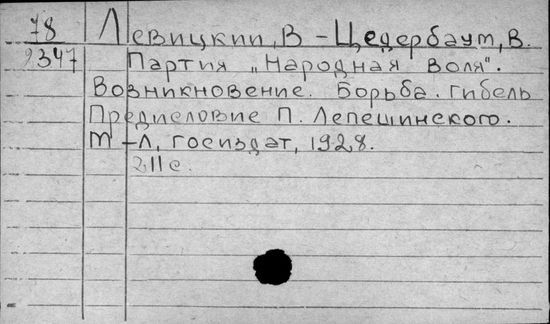 78 Левицкии, В - Цедербаум, В.
9347 Партия „Народная Воля".
Возникновение. Борьба. гибель
Предисловие П. Лепешинского.
М-Л, госиздат, 1928.
211 с.